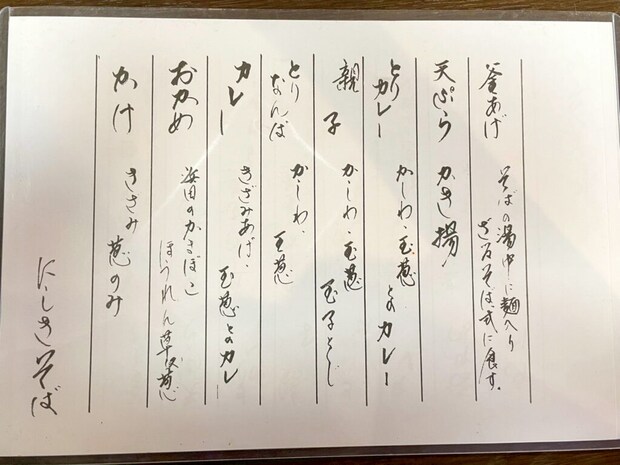 釜あげ
そばの湯中に麺入り
ざるそば式に食す。
天ぷら
かき揚
とりカレー
かしわ・玉葱とのカレー
親子
かしわ・玉葱
玉子とじ
とりなんば
かしわ・玉葱
カレー
きざみあげ・玉葱とのカレー
おかめ
浜田のかまぼこ
ほうれん草
かけ
きざみ葱のみ
にしきそば